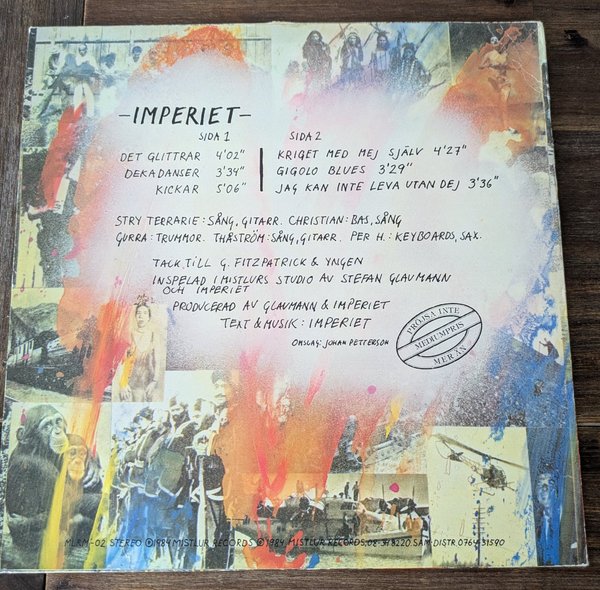 -IMPERIET-
SIDA 1
DET GLITTRAR 4'02"
DEKADANSER 3'34"
KICKAR 5'06"
SIDA 2
KRIGET MED MEJ SJÄLV 4'27"
GIGOLO BLUES 3'29"
JAG KAN INTE LEVA UTAN DEJ 3'36"
STRY TERRARIE: SÅNG, GITARR. CHRISTIAN: BAS, SÅNG
GURRA: TRUMMOR. THÅSTRÖM: SÅNG, GITARR. PER H.: KEYBOARDS, SAX.
TACK TILL G. FITZPATRICK & YNGEN
INSPELAD I MISTLURS STUDIO AV STEFAN GLAUMANN
OCH IMPERIET
PRODUCERAD AV GLAUMANN & IMPERIET
TEXT & MUSIK: IMPERIET
OMSLAG: JOHAN PETTERSON
PRÖJSA INTE
MEDIUMPRIS
MER ÄN
MLRM-02 STEREO Ⓟ1984 MISTLUR RECORDS ©1984 MISTLUR RECORDS. 08-318220. SAM-DISTR. 0764-31590